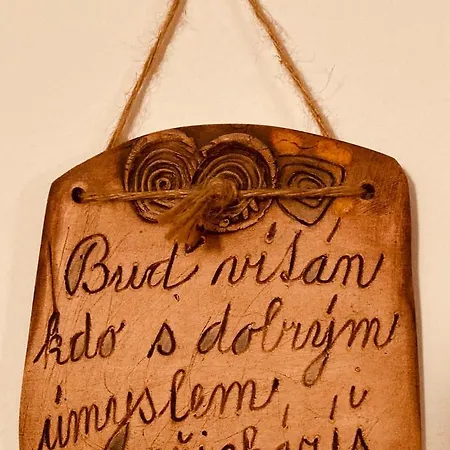 Buď vítán
kdo s dobrým
úmyslem
přicházíš